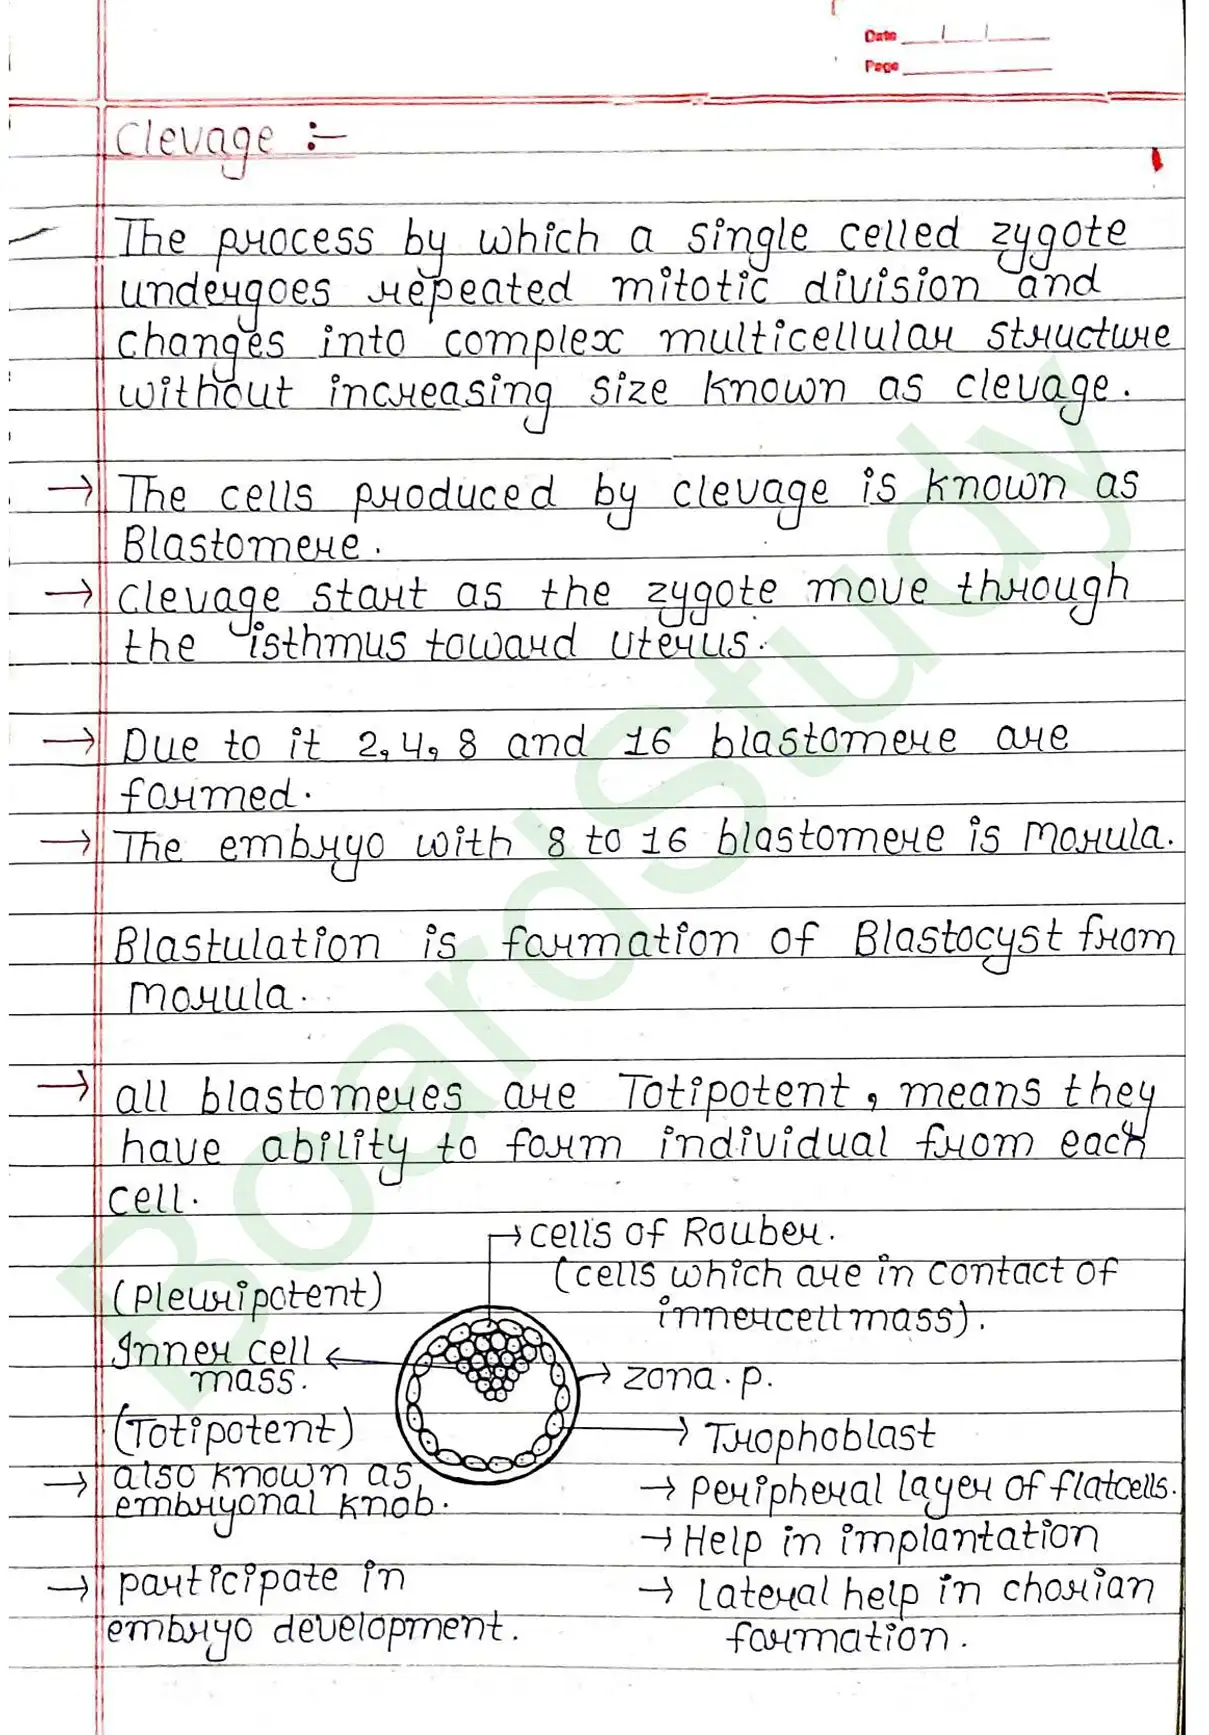 Date
Page
Clevage :-
The process by which a single celled zygote
undergoes repeated mitotic division and
changes into complex multicellular structure
without increasing size known as clevage.
→ The cells produced by clevage is known as
Blastomere.
→ clevage start as the zygote move through
the isthmus toward uterus.
→ Due to it 2, 4, 8 and 16 blastomere are
formed.
→ The embryo with 8 to 16 blastomere is Morula.
Blastulation is formation of Blastocyst from
morula.
→ all blastomeres are Totipotent, means they
have ability to form individual from each
cell.
→ cells of Rouber.
(cells which are in contact of
innercell mass).
(Pleuripotent)
Inner cell
mass.
→ zona. p.
(Totipotent)
→ Trophoblast
→ also known as
embryonal knob.
→ Peripheral layer of flatcells.
→ Help in implantation
→ participate in
embryo development.
→ Lateral help in chorian
formation.
BoardStudy